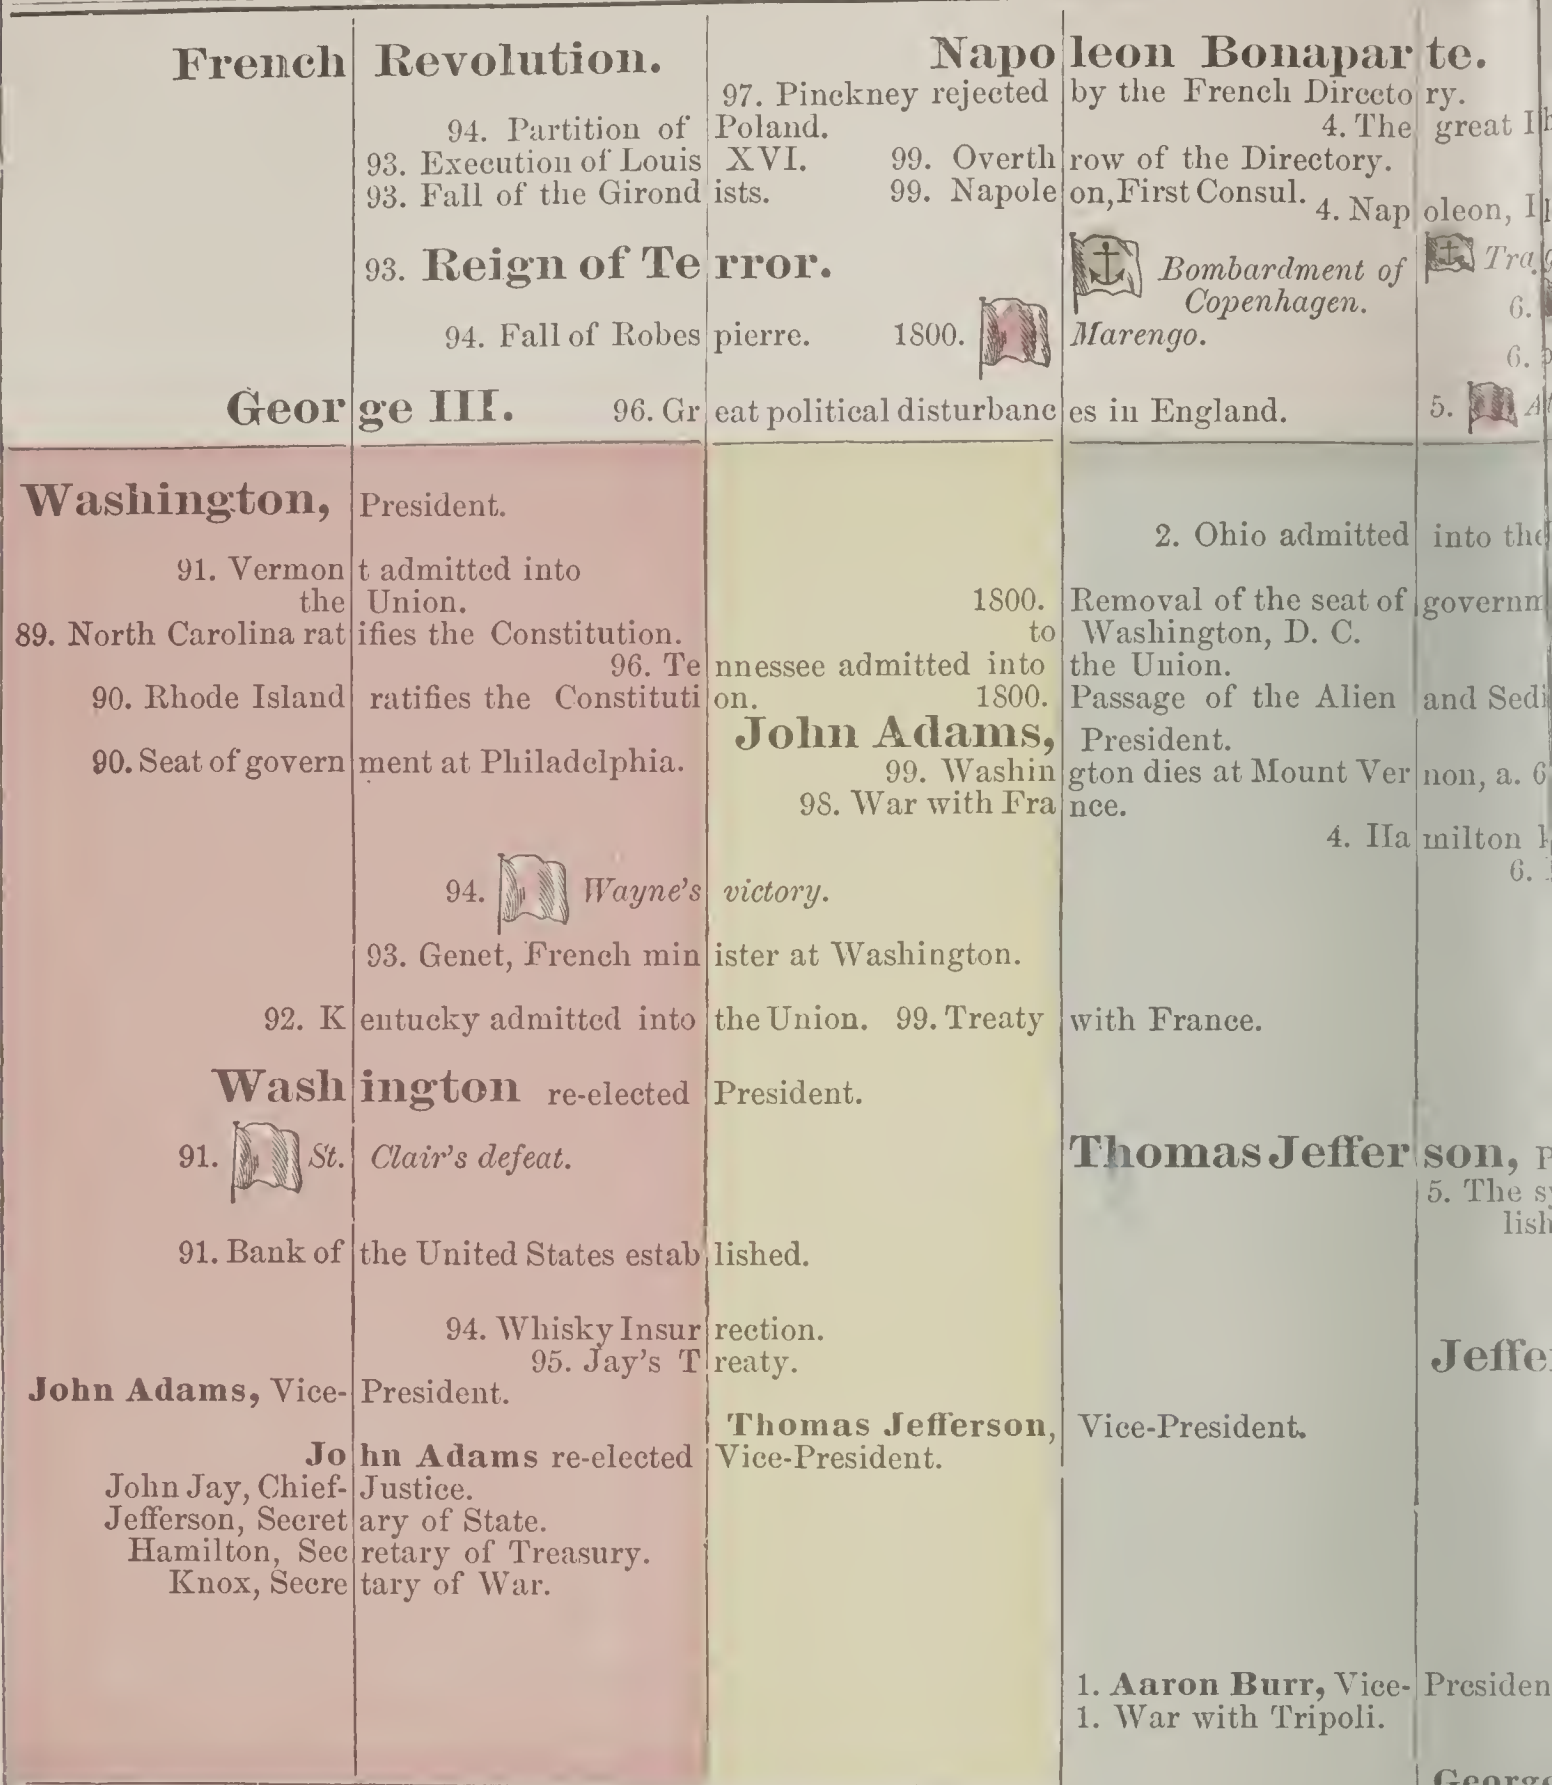 French Revolution. Napoleon Bonaparte.
97. Pinckney rejected by the French Directory.
94. Partition of Poland. 4. The great
93. Execution of Louis XVI. 99. Overthrow of the Directory.
93. Fall of the Girondists. 99. Napoleon, First Consul. 4. Napoleon,
93. Reign of Terror. Bombardment of
Copenhagen. 6.
94. Fall of Robespierre. 1800. Marengo.
6.
George III. 96. Great political disturbances in England. 5.
Washington, President.
2. Ohio admitted into the
91. Vermont admitted into
the Union. 1800. Removal of the seat of
89. North Carolina ratifies the Constitution. to Washington, D. C.
96. Tennessee admitted into the Union.
90. Rhode Island ratifies the Constitution. 1800. Passage of the Alien and
John Adams, President.
90. Seat of government at Philadelphia. 99. Washington dies at Mount Vernon, a. 6
98. War with France.
4. Hamilton
6.
94. Wayne's victory.
93. Genet, French minister at Washington.
92. Kentucky admitted into the Union. 99. Treaty with France.
Washington re-elected President.
91. St. Clair's defeat. Thomas Jefferson,
5. The
91. Bank of the United States established.
94. Whisky Insurrection.
95. Jay's Treaty.
John Adams, Vice-President.
Thomas Jefferson, Vice-President.
John Adams re-elected Vice-President.
John Jay, Chief-Justice.
Jefferson, Secretary of State.
Hamilton, Secretary of Treasury.
Knox, Secretary of War.
1. Aaron Burr, Vice-Presiden
1. War with Tripoli.